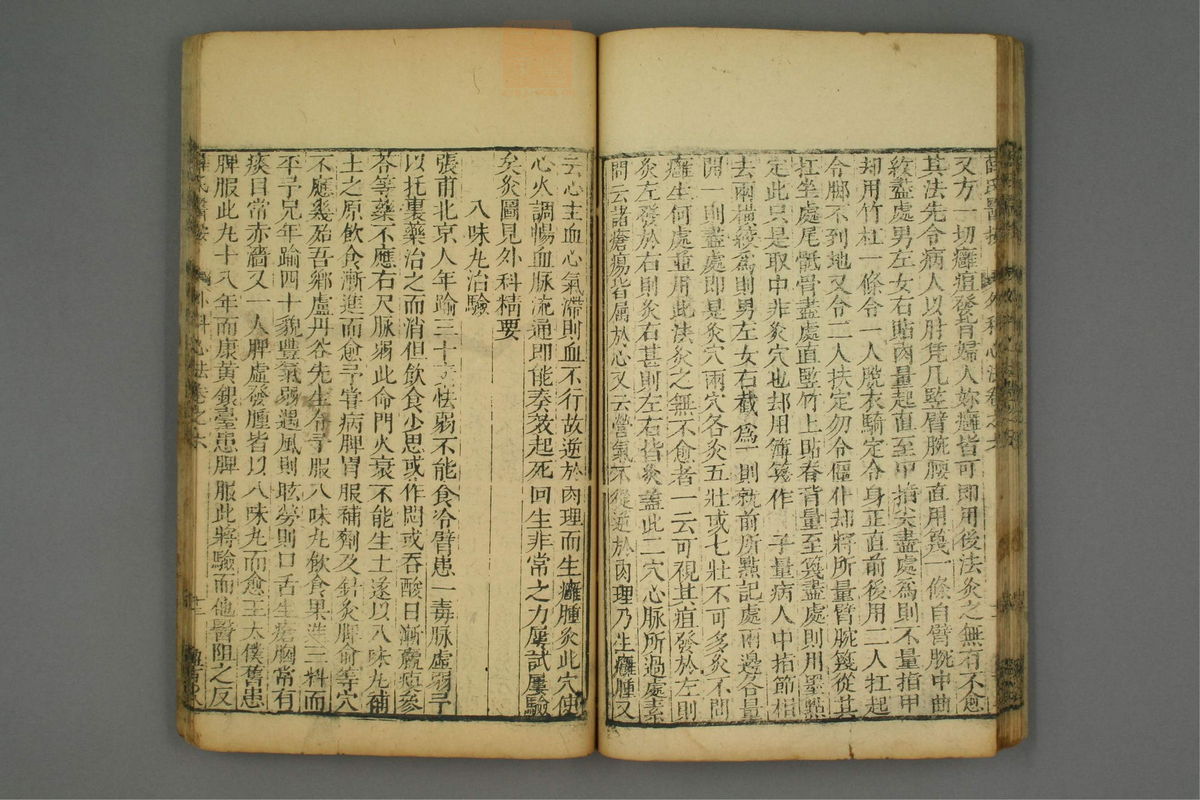 又方一切癰疽發背婦人妳癰皆可即用後法灸之無有不愈
其法先令病人以肘凭几竪臂腕腰直用篾一條自臂腕中曲
紋盡處男左女右貼肉量起直至中指尖盡處為則不量指甲
却用竹杠一條令一人脫衣騎定令身正直前後用二人扛起
令脚不到地又令二人扶定勿令傴仆却將所量臂腕篾從其
扛坐處尾骶骨盡處直竪竹上貼脊背量至篾盡處則用墨點
定此只是取中非灸穴也却用薄篾作 子量病人中指節相
去兩橫紋為則男左女右截為一則就前所點記處兩邊各量
開一則盡處即是灸穴兩穴各灸五壯或七壯不可多灸不問
癰生何處並用此法灸之無不愈者一云可視其疽發於左則
灸左發於右則灸右甚則左右皆灸蓋此二穴心脉所過處素
問云諸瘡瘍皆属於心又云營氣不從逆於肉理乃生癰腫又
云心主血心氣滯則血不行故逆於肉理而生癰腫灸此穴使
心火調暢血脉流通即能奏效起死回生非常之力屢試屢驗
矣灸圖見外科精要
八味丸治驗
張甫北京人年踰三十六怯弱不能食冷臂患一毒脉虛弱予
以托裏藥治之而消但飲食少思或作悶或吞酸日漸羸瘦參
苓等藥不應右尺脉弱此命門火衰不能生土遂以八味丸補
土之原飲食漸進而愈予嘗病脾胃服補劑及針灸脾俞等穴
不應幾殆吾鄉盧丹谷先生令予服八味丸飲食果進三料而
平予兄年踰四十貌豐氣弱遇風則眩勞則口舌生瘡胸常有
痰目常赤濇又一人脾虛發腫皆以八味丸而愈王太僕舊患
脾服此丸十八年而康黃銀臺患脾服此將驗而他醫阻之反
薛氏醫按 外科心法卷之六